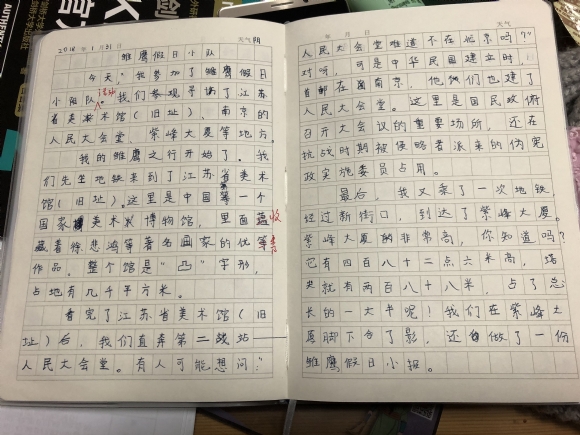 2018年1月31日 天气阴
雏鹰假日小队
今天，我参加了雏鹰假日
小队活动。我们参观寻访了江苏
省美术馆（旧址）、南京的
人民大会堂、紫峰大厦等地方。
我的雏鹰之行开始了。我
们先坐地铁来到了江苏省美术
馆（旧址）。这里是中国第一个
国家美术博物馆，里面收
藏着徐悲鸿等著名画家的优秀
作品。整个馆是“凸”字形，
占地有几千平方米。
看完了江苏省美术馆（旧
址）后，我们直奔第二站——
人民大会堂。有人可能想问：“
年 月 日 天气
人民大会堂难道不在北京吗？”
对呀，可是中华民国建立时，
首都在南京，他们也建了
人民大会堂。这里是国民政府
召开大会议的重要场所，还在
抗战时期被侵略者派来的伪宪
政实施委员占用。
最后，我又乘了一次地铁，
经过新街口，到达了紫峰大厦。
紫峰大厦非常高，你知道吗？
它有四百八十二点六米高，塔
就有两百八十八米，占了总
长的一大书呢！我们在紫峰大
厦脚下合了影，还做了一份
雏鹰假日小报。
AUTHENTI
K